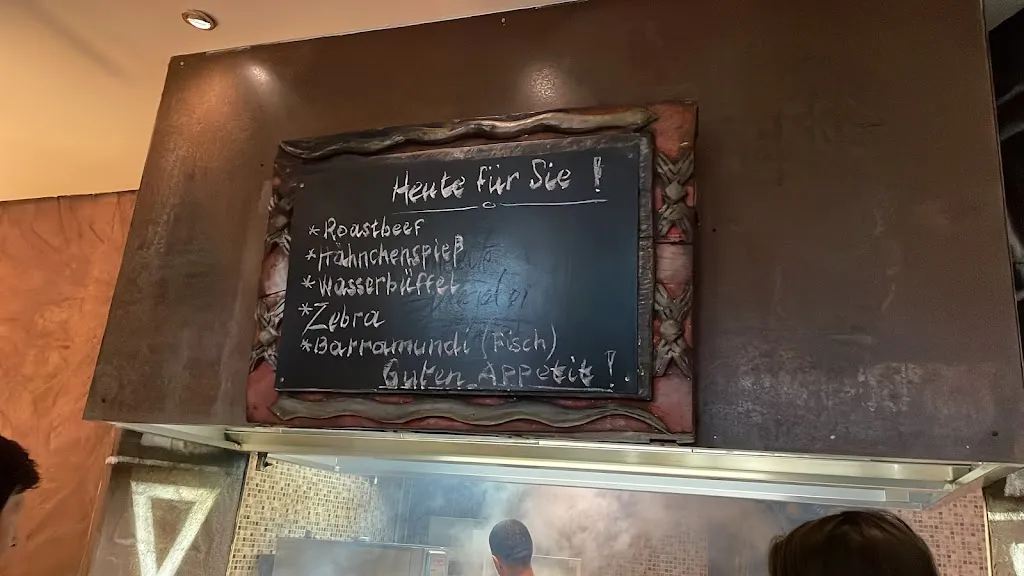 Heute für Sie !
*Roastbeef
*Hähnchenspieß
*Wasserbüffel
*Zebra
*Barramundi (Fisch)
Guten Appetit !